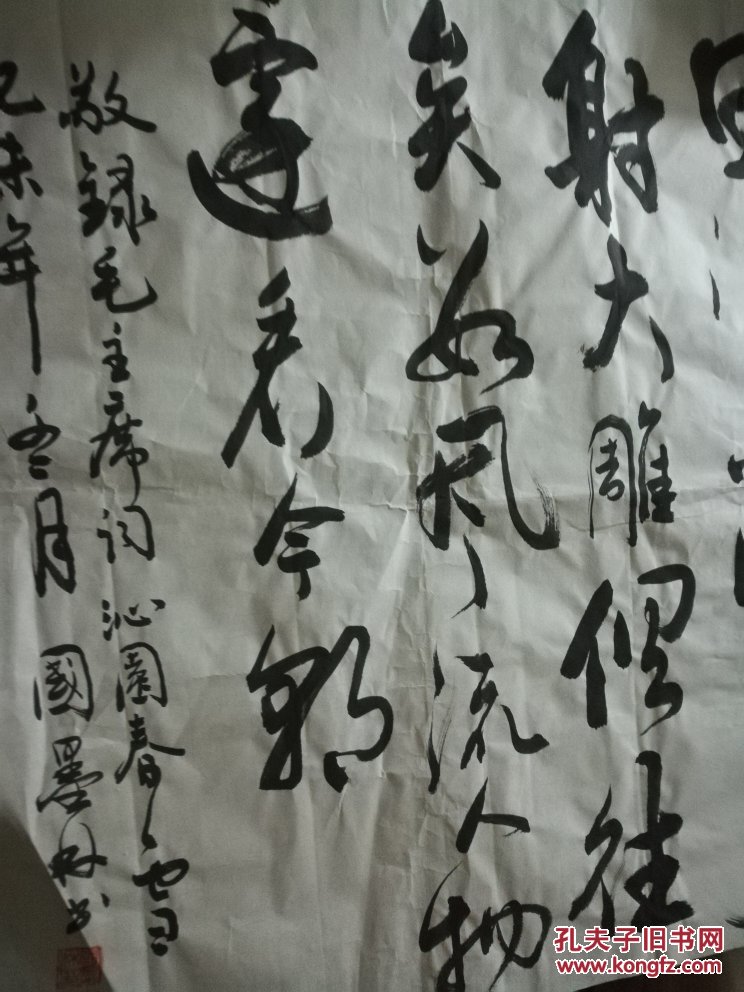 射大雕俱往
矣数風流人物
還看今朝
敬録毛主席词沁園春雪
己未年冬月 國墨林书
孔夫子旧书网
www.kongfz.com